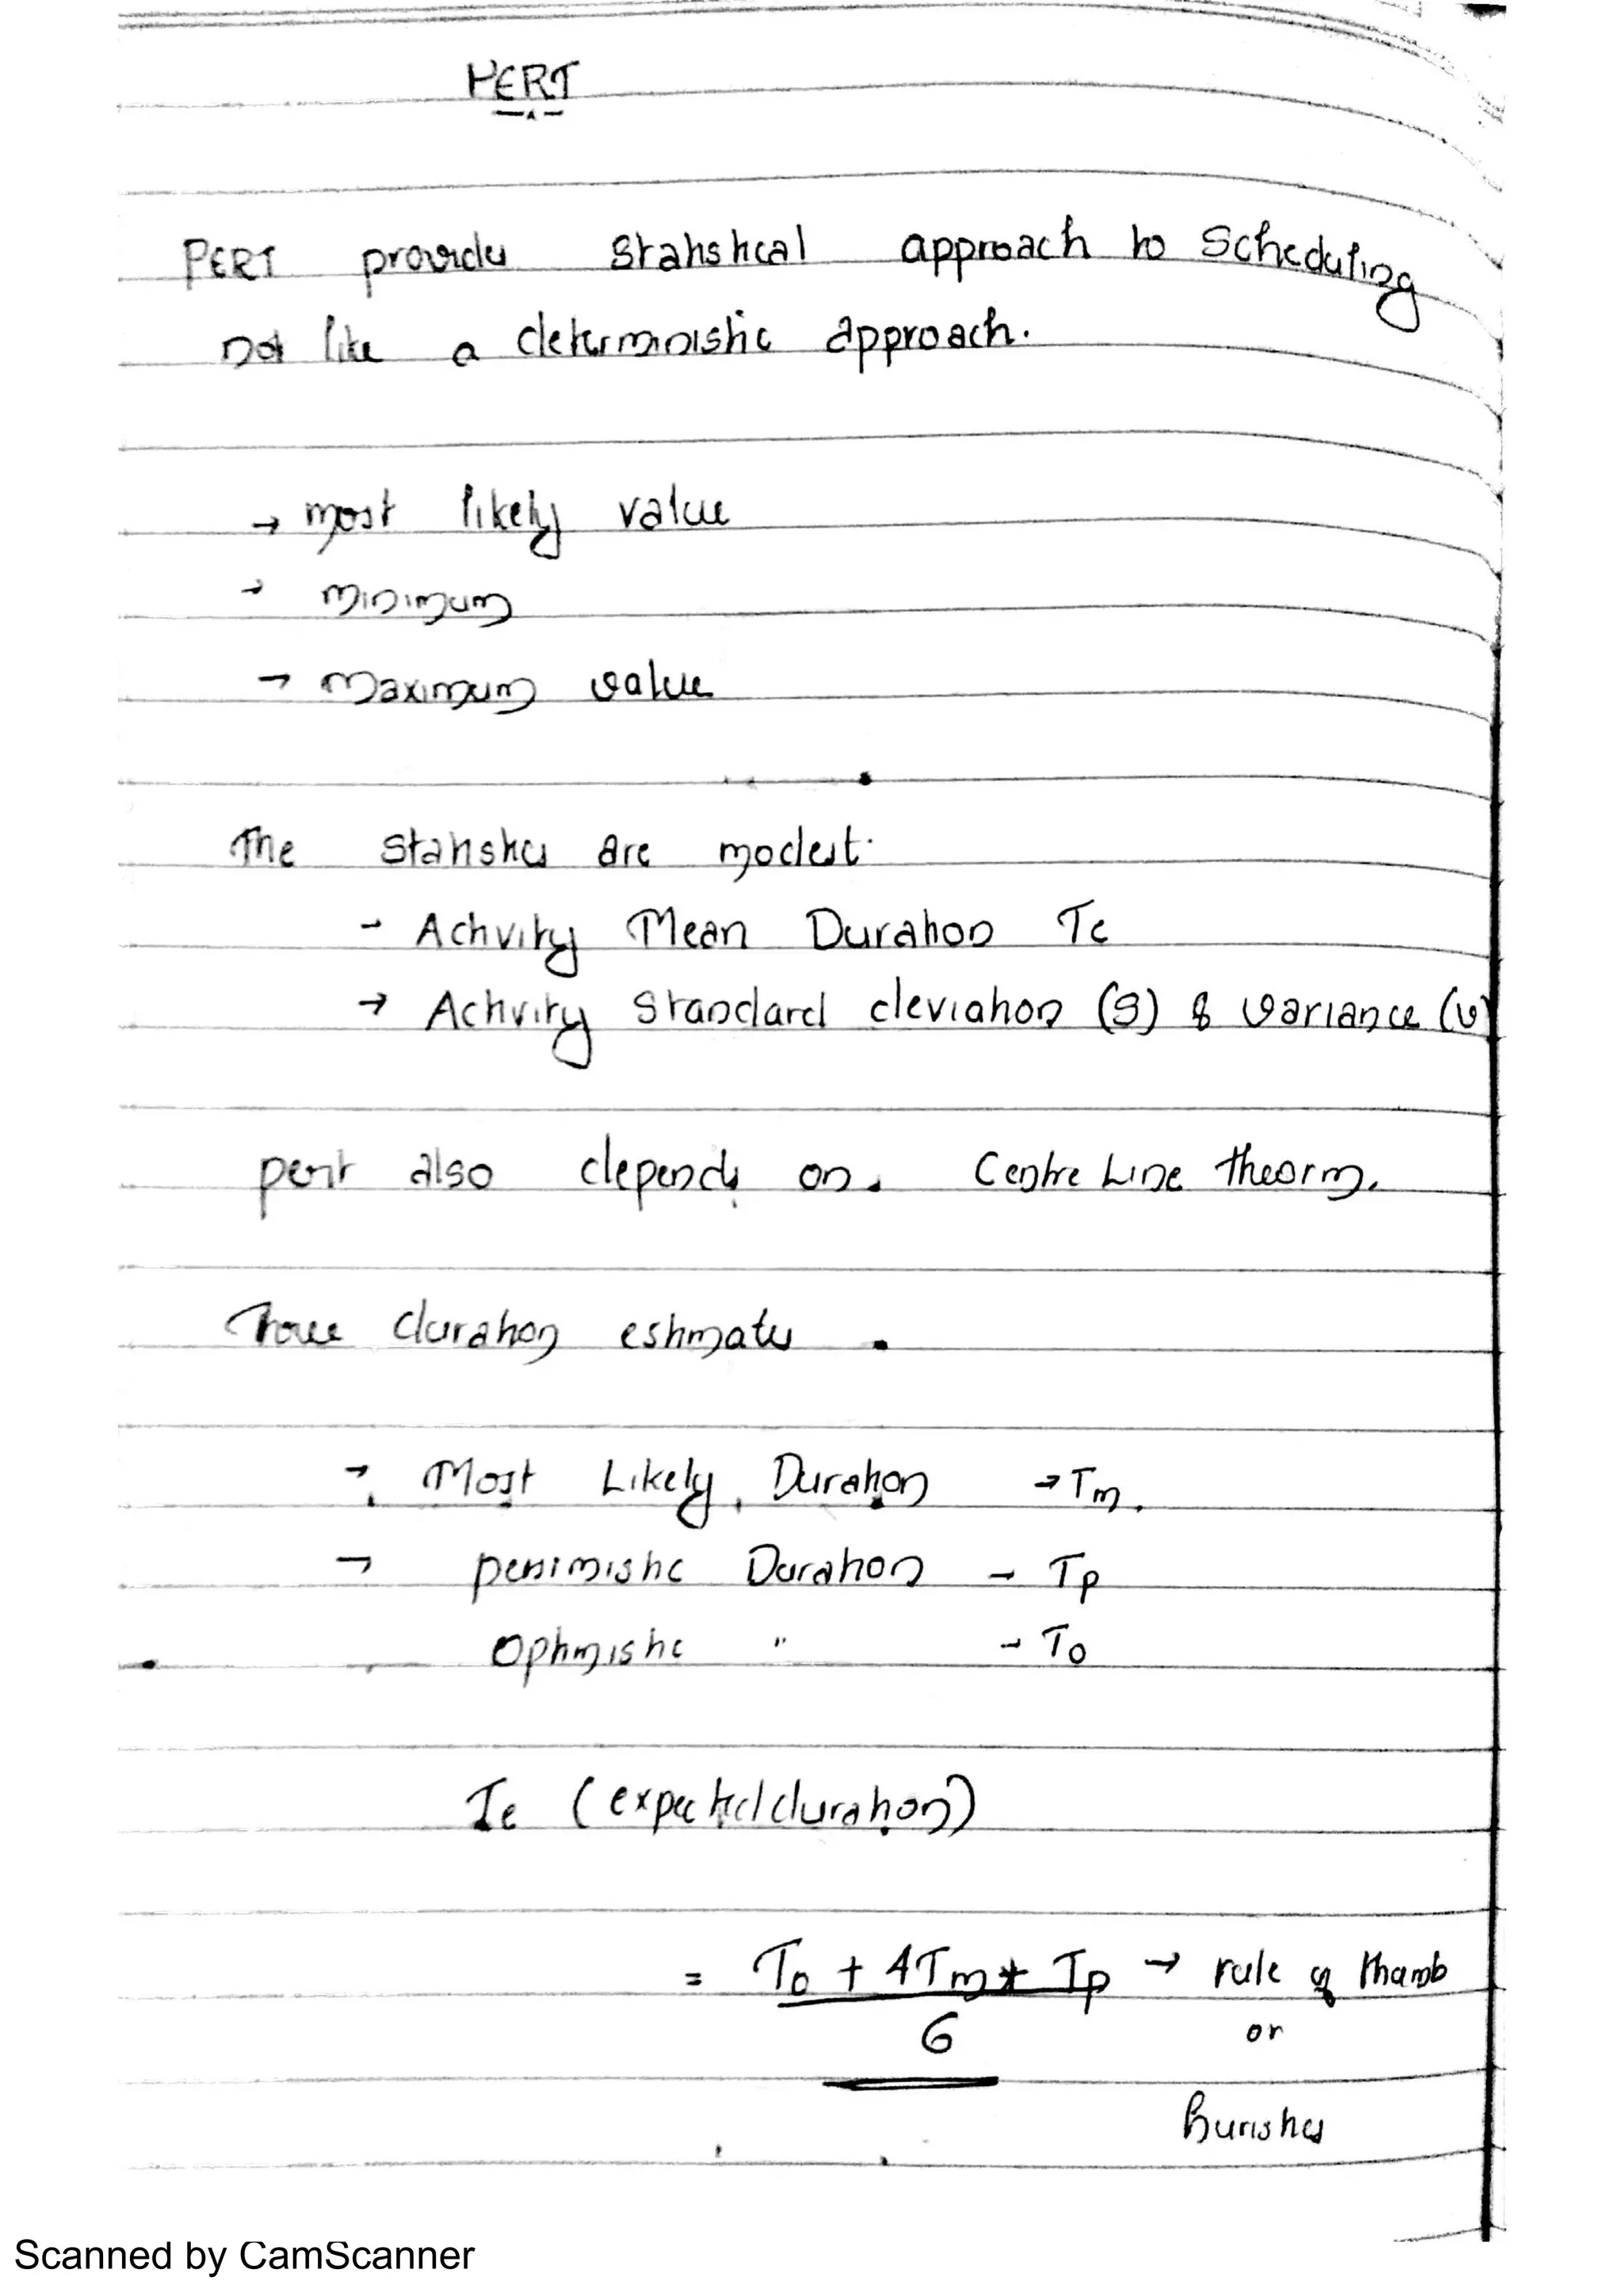 PERT
PERT provides statistical approach to scheduling
not like a deterministic approach.
→ most likely value
→ minimum
→ maximum value
The statistics are modest.
- Activity Mean Duration Te
→ Activity Standard deviation (S) & variance (v)
pert also depends on. Centre Line theorm.
Three duration estimates
→ Most Likely Duration → Tm.
→ pessimistic Duration - Tp
Optimistic " - To
Te (expected duration)
= To + 4Tm + Tp → rule of thumb
6 or
heuristics
Scanned by CamScanner